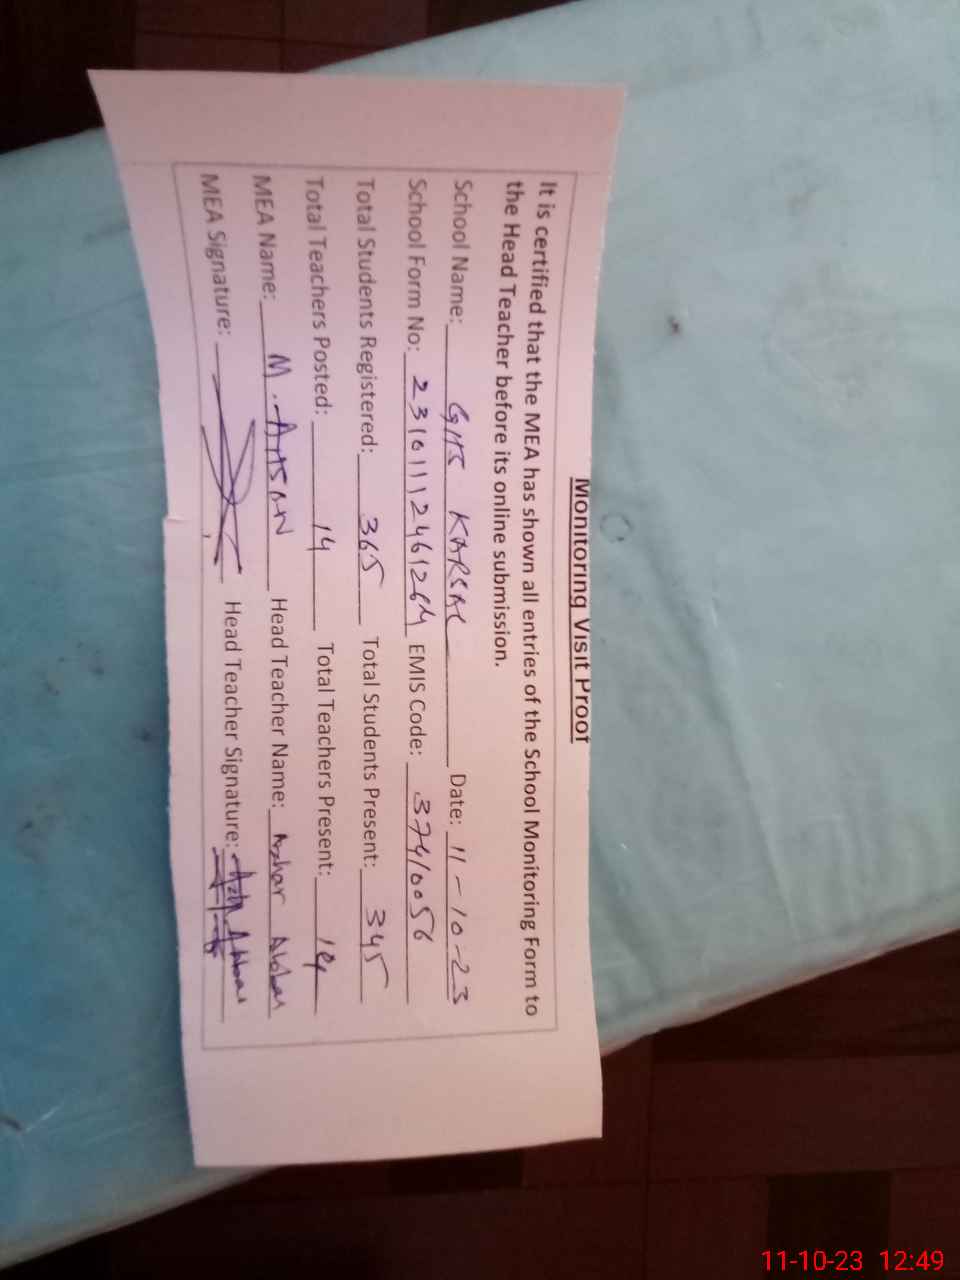 Monitoring Visit Proof
It is certified that the MEA has shown all entries of the School Monitoring Form to
the Head Teacher before its online submission.
School Name: GHS KARSAL Date: 11-10-23
School Form No: 23101112461264 EMIS Code: 37410056
Total Students Registered: 365 Total Students Present: 345
Total Teachers Posted: 14 Total Teachers Present: 14
MEA Name: M. AHSAN Head Teacher Name: Azhar Abbas
MEA Signature: Head Teacher Signature:
11-10-23 12:49